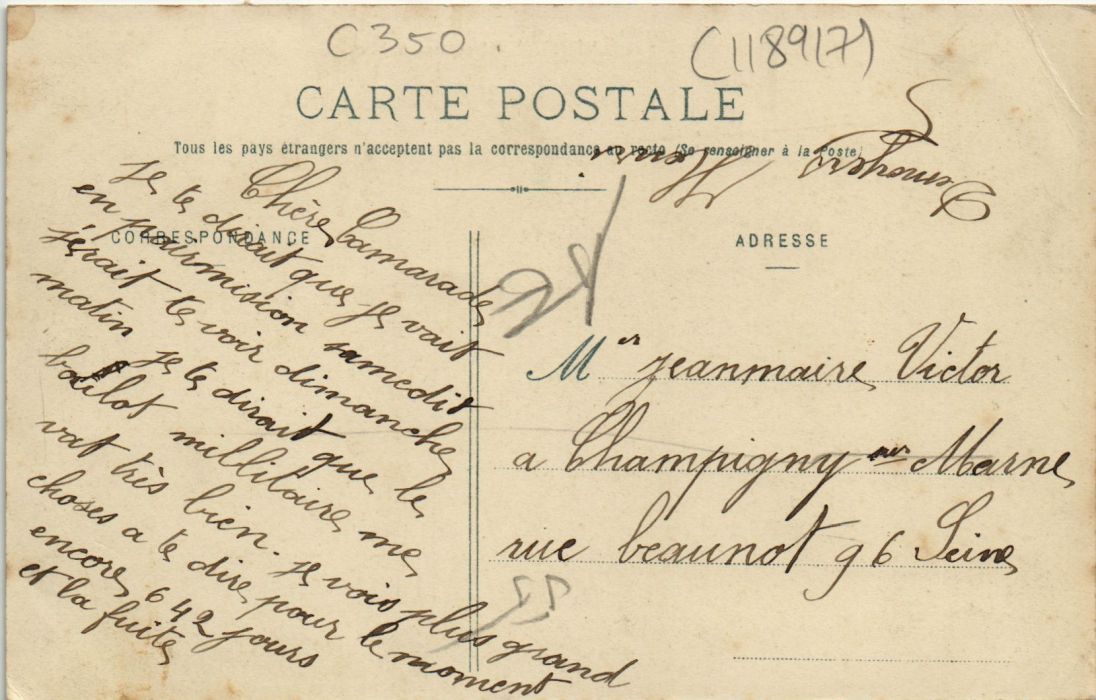 C350.
(118917)
CARTE POSTALE
Tous les pays étrangers n'acceptent pas la correspondance au recto (Se renseigner à la Poste)
CORRESPONDANCE
Chère Camarade
je te dirait que je vait
en pairmision samedit
jérait te voir dimanche
matin je te dirait que le
boulot millitaire me
vat très bien. je vois plus grand
choses a te dire pour le moment
encore 642 jours
et la fuite
ADRESSE
Mer jeanmaire Victor
a Champigny sur Marne
rue beaunot 96 Seine